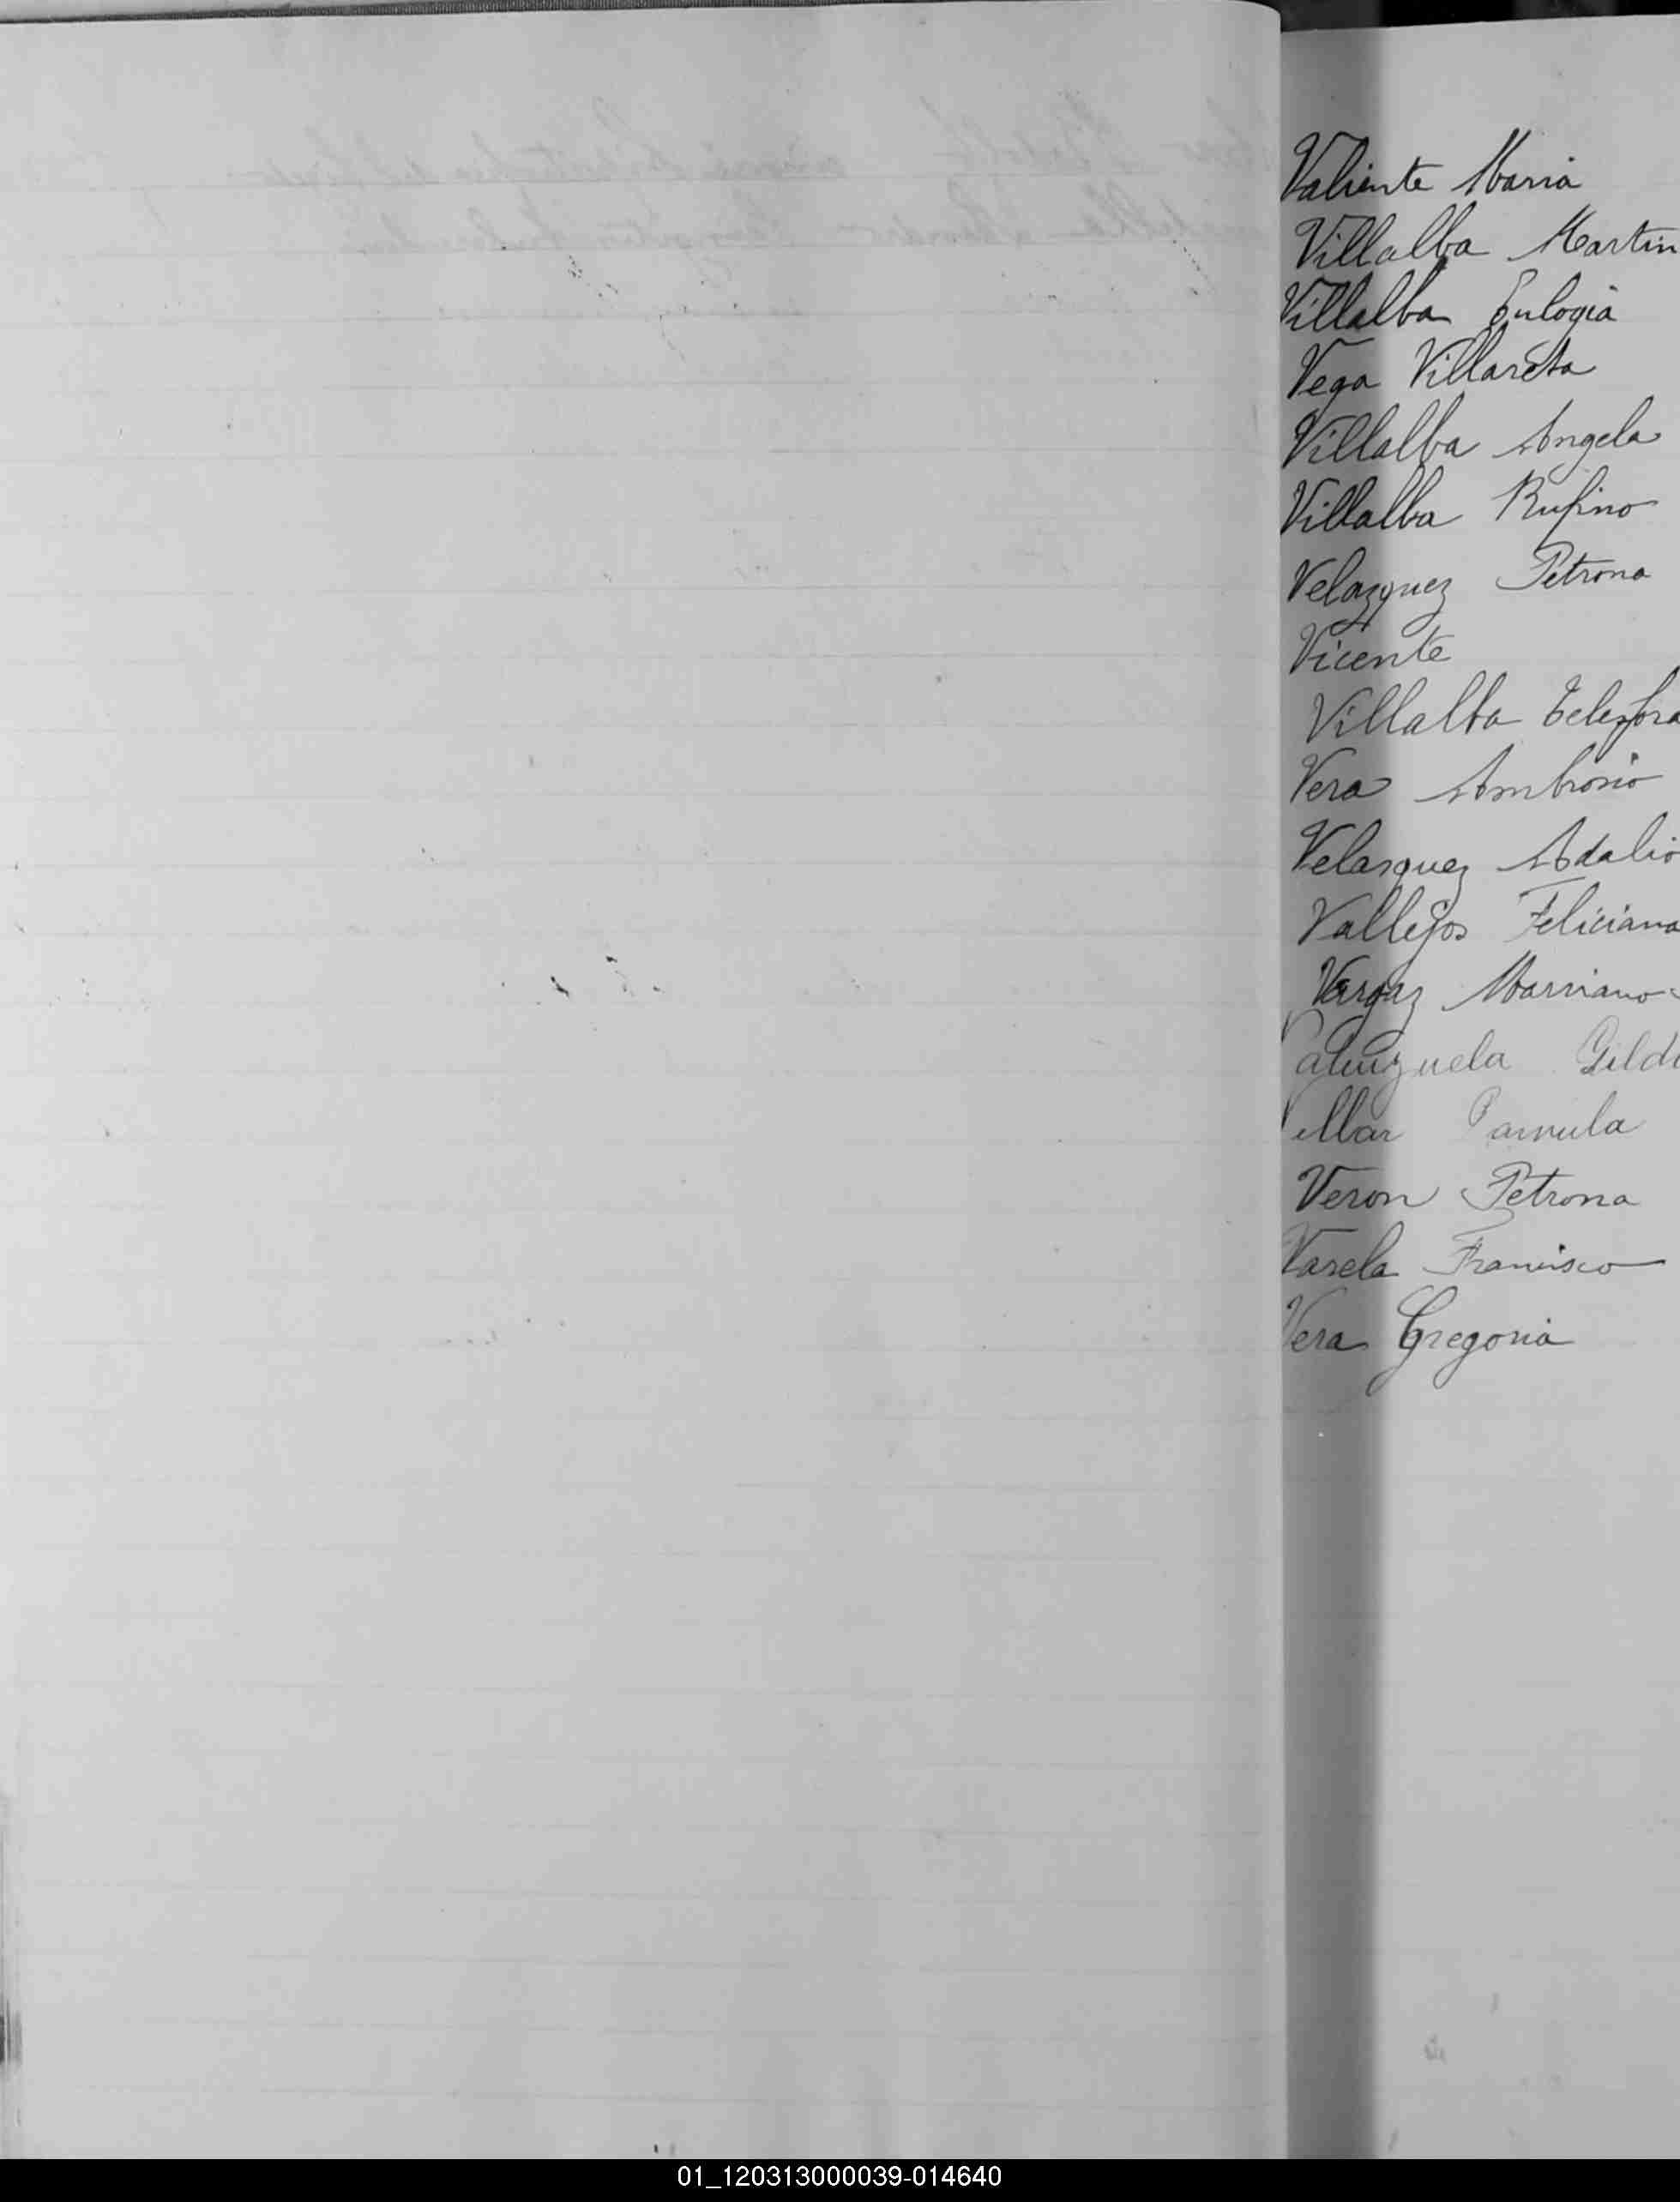 Valiente Maria
Villalba Martin
Villalba Eulogia
Vega Villareta
Villalba Angela
Villalba Rufino
Velazquez Petrona
Vicente
Villalba Telesfora
Vera Ambrosio
Velasquez Adalio
Vallejos Feliciana
Vargaz Marriano
Valenzuela Gild
Villar
Veron Petrona
Varela Francisco
Vera Gregoria
01_120313000039-014640